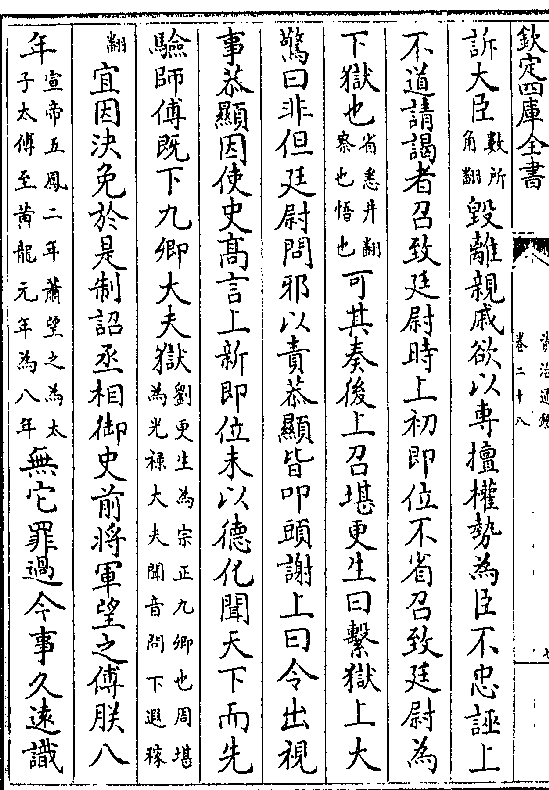 欽定四庫全書
資治通鑑
卷二十八
訴大臣數所角翻毀離親戚欲以專擅權勢為臣不忠誣上
不道請謁者召致廷尉時上初即位不省召致廷尉為
下獄也省悉井翻察也悟也可其奏後上召堪更生曰繫獄上大
驚曰非但廷尉問邪以責恭顯皆叩頭謝上曰令出視
事恭顯因使史髙言上新即位未以德化聞天下而先
驗師傅既下九卿大夫獄劉更生為宗正九卿也周堪為光祿大夫聞音問下遐稼
翻宜因決免於是制詔丞相御史前將軍望之傅朕八
年宣帝五鳳二年蕭望之為太子太傅至黄龍元年為八年無它罪過今事久遠識